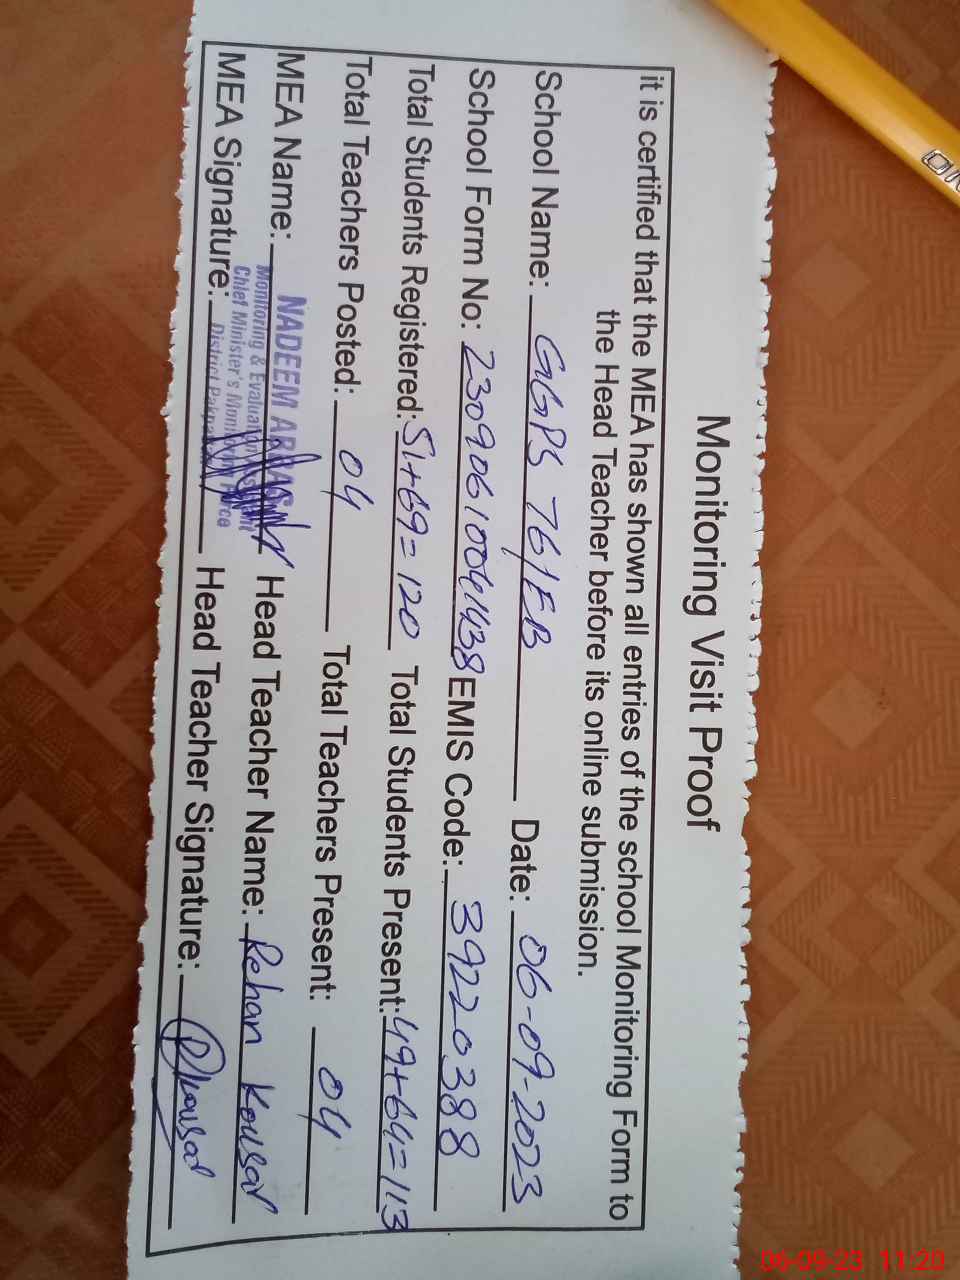 Monitoring Visit Proof
it is certified that the MEA has shown all entries of the school Monitoring Form to
the Head Teacher before its online submission.
School Name: GGPS 761EB Date: 06-09-2023
School Form No: EMIS Code: 39220388
Total Students Registered: 51+69=120 Total Students Present: 49+64=113
Total Teachers Posted: 04 Total Teachers Present: 04
MEA Name: NADEEM Head Teacher Name: Rehan Kousar
Monitoring & Evaluation
Chief Minister's Monitoring Force
District
MEA Signature: Head Teacher Signature: Rkousar
06-09-23 11:20